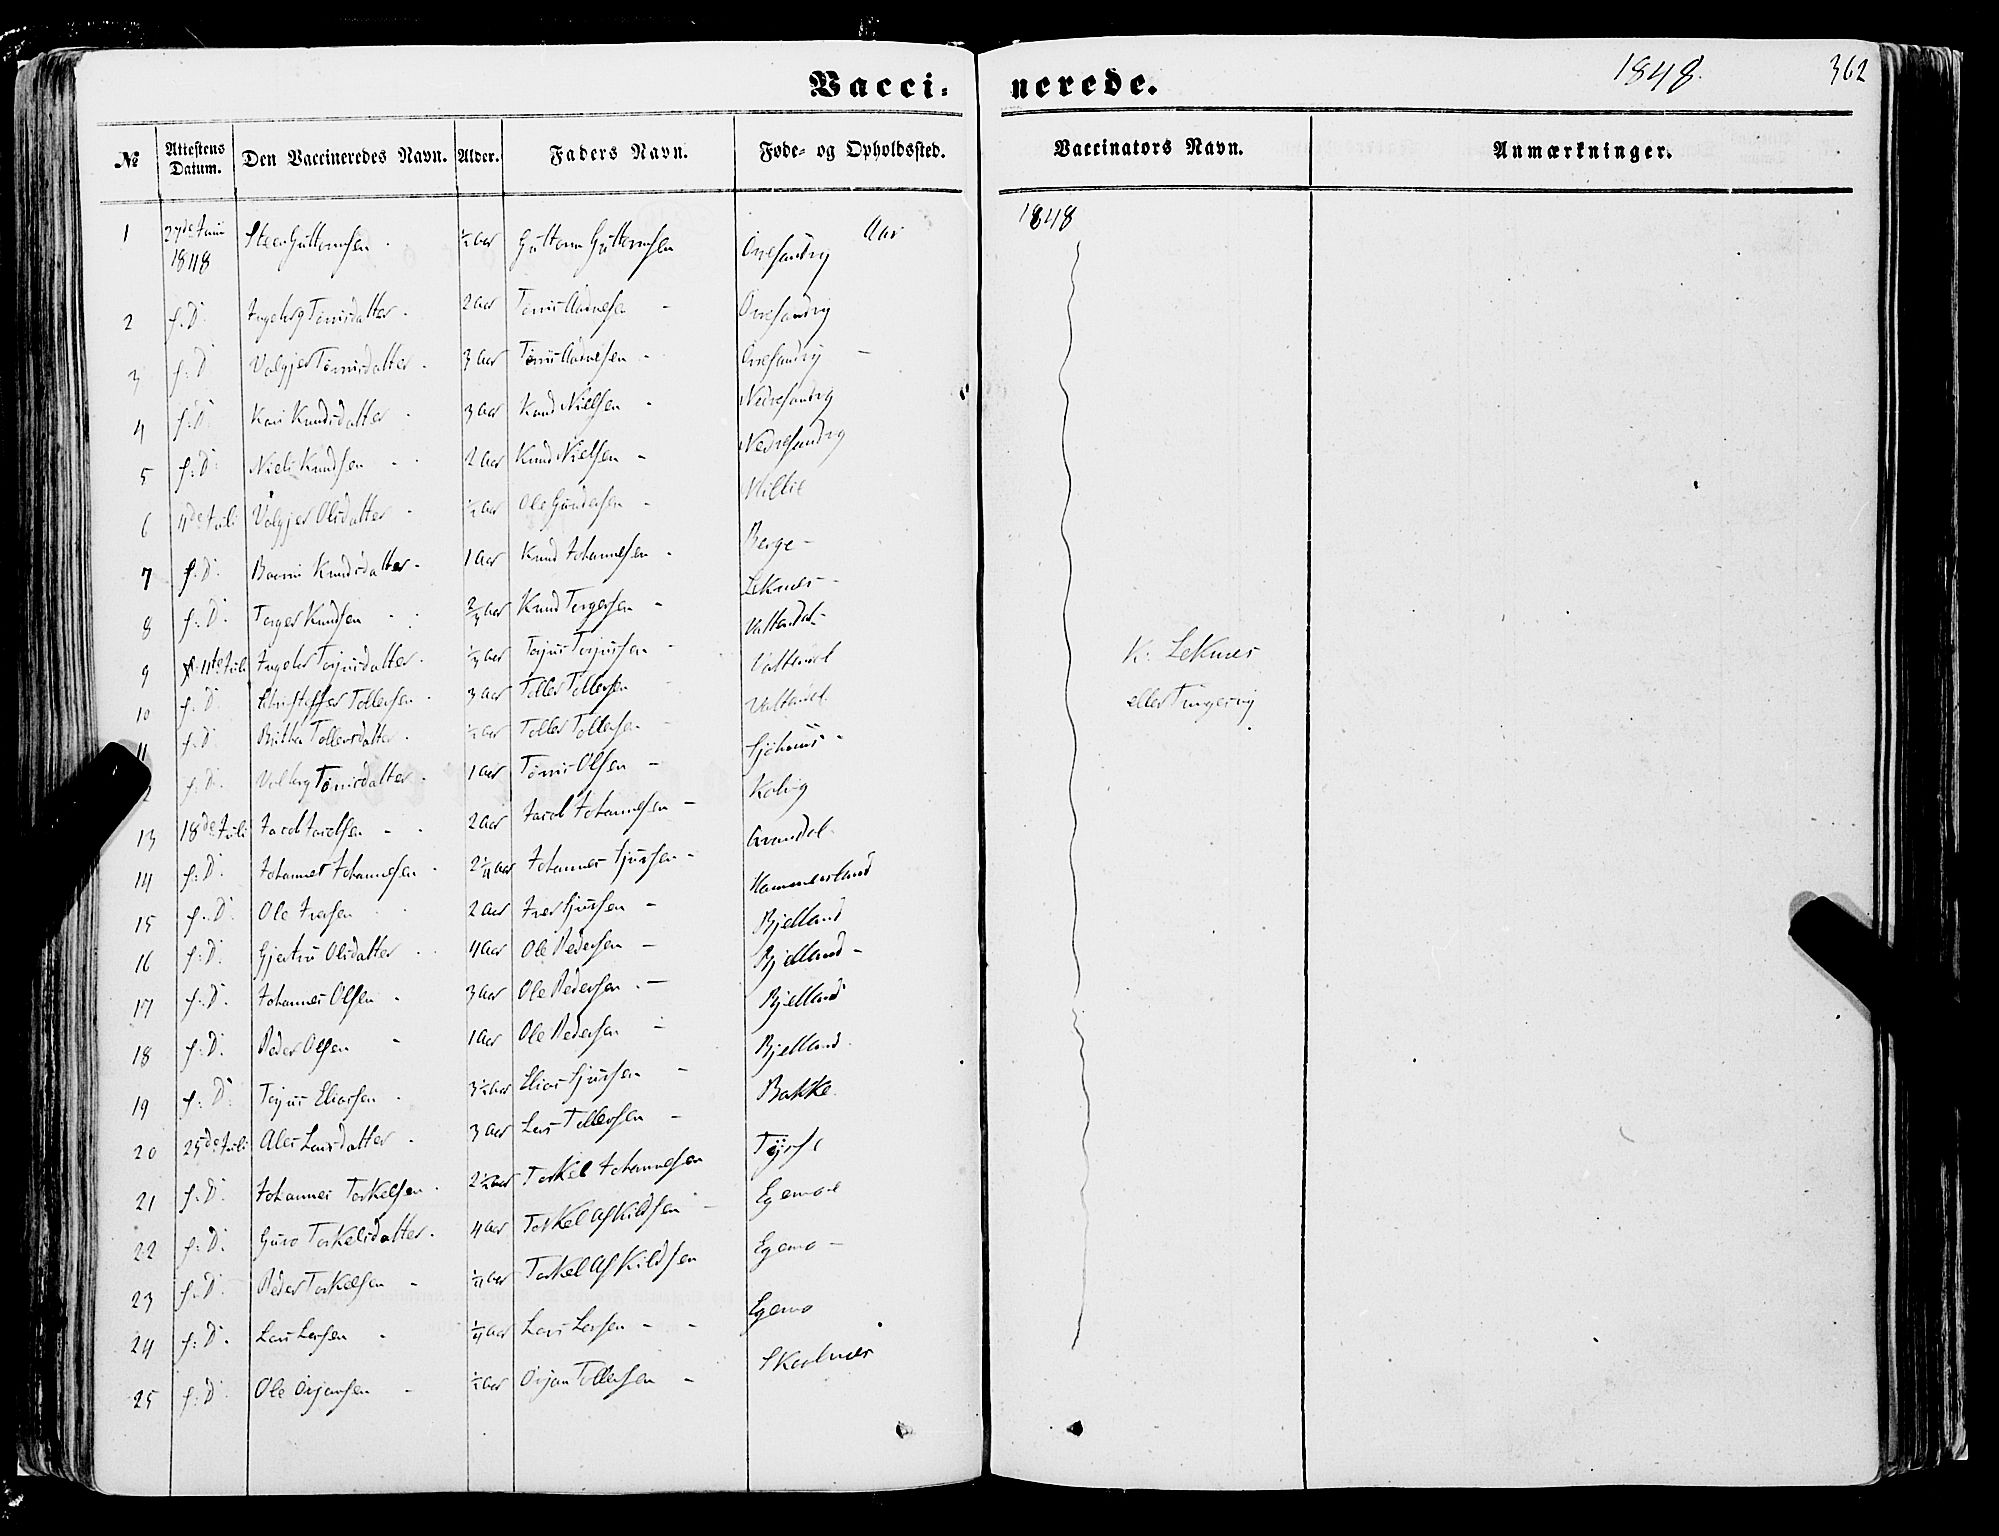 Vacci-nerede. 1848. 362
№ Attestens Datum. Den Vaccineredes Navn. Alder. Faders Navn. Føde- og Opholdssted. Vaccinators Navn. Anmærkninger.
Aar 1848
1 27de Juni 1848 Steen Guttormsen ½ Aar Guttorm Guttormsen Övresandvig
2 s: D: Ingebrg Tönnisdatter 2 Aar Tönnis Aadnesen Övresandvig
3 s: D: Valgjer Tönnisdatter 3 Aar Tönnis Aadnesen Övresandvig
4 s: D: Kari Knudsdatter 3 Aar Knud Nielsen Nedresandvig
5 s: D: Niels Knudsen 2 Aar Knud Nielsen Nedresandvig
6 4de Juli Valgjer Olsdatter ½ Aar Ole Gundersen
7 s: D: Knudsdatter 1 Aar Knud Johannesen Berge
8 s: D: Torger Knudsen Aar Knud Torgersen Leknes
9 11te Juli Ingebr Torjusdatter Aar Torjus Torjussen Valtendal
10 s: D: Christoffer Tollevsen 3 Aar Tollev Tollevsen Valtendal
11 s: D: Brithe Tollevsdatter ½ Aar Tollev Tollevsen Valtendal
2 s: D: Valborg Tönnisdatter 1 Aar Tönnis Olsen Sjöhuus
13 18de Juli Jacob Jacobsen 2 Aar Jacob Johannesen Kalvig
14 s: D: Johannes Johannesen 2¼ Aar Johannes Sjursen
15 s: D: Ole Iversen 2 Aar Iver Sjursen Hammersland
16 s: D: Gjertru Olsdatter 4 Aar Ole Pedersen Bjelland
17 s: D: Johannes Olsen 3 Aar Ole Pedersen Bjelland
18 s: D: Peder Olsen 1 Aar Ole Pedersen Bjelland
19 s: D: Torjus Eliassen 3½ Aar Elias Sjursen Bjelland
20 25de Juli Ales Larsdatter 3 Aar Lars Tollevsen Bakke
21 s: D: Johannes Torkelsen 2½ Aar Torkel Johannesen
22 s: D: Guro Torkelsdatter 4 Aar Torkel Askildsen Egemo
23 s: D: Peder Torkelsen ¼ Aar Torkel Askildsen Egemo
24 s: D: Lars Larsen ¼ Aar Lars Larsen Egemo
25 s: D: Ole Örjansen ½ Aar Örjan Tollefsen
K: Leknes
eller Tungesvig